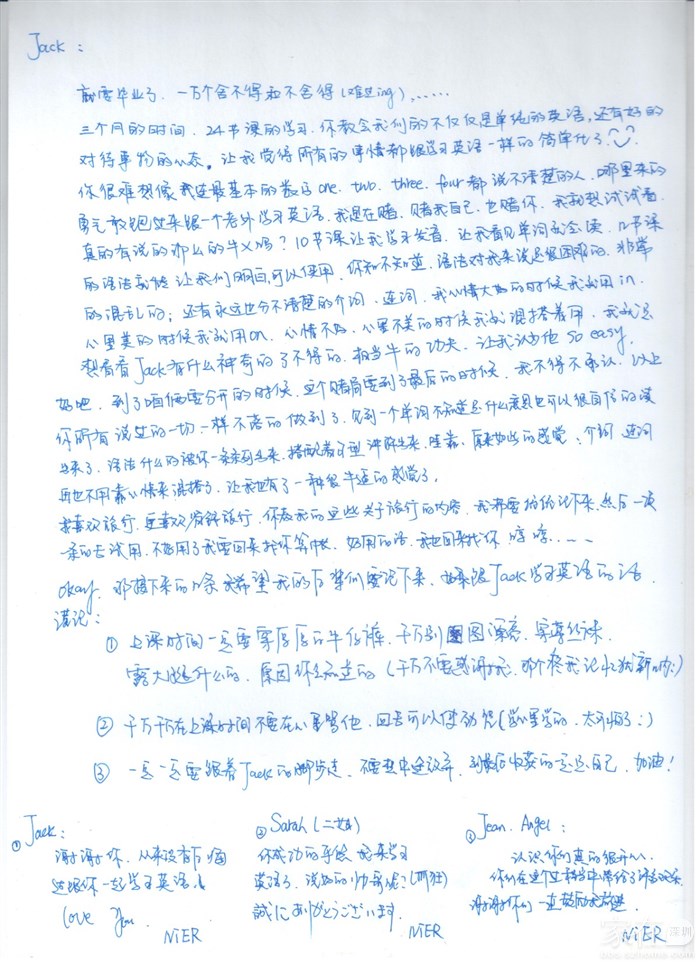 Jack：
就要毕业了，一万个舍不得和不舍得（难过ing），……
三个月的时间，24节课的学习，你教会我们的不仅仅是单纯的英语，还有好的
对待事物的心态。让我觉得所有的事情都跟学习英语一样的简单化了
你很难想像我连最基本的数字one, two, three, four都说不清楚的人，哪里来的
勇气敢跑过来跟一个老外学习英语，我是在赌，赌我自己，也赌你，我就想试试看
真的有说的那么的牛X吗？10节课让我学习发音，让我看见单词就会读，12节课
的语法就能让我们明白，可以使用，你知不知道，语法对我来说是很困难的，非常
的混乱的；还有永远也分不清楚的介词，连词，我心情大好的时候我就用in，
心里美的时候我就用on，心情不好，心里不美的时候我就混搭着用，我就是
想看看Jack有什么神奇的了不得的，相当牛的功夫，让我认为他so easy。
好吧，到了咱俩要分开的时候，这个赌局要到了最后的时候，我不得不承认，以上
你所有说过的一切一样不落的做到了，见到一个单词不知道是什么意思也可以很自信的读
出来了，语法什么的被你一条条列出来，介词 连词
再也不用靠心情来混搭了，让我也有了一种很牛逼的感觉了。
我喜欢旅行，更喜欢穷游旅行，你教我的这些关于旅行的内容，我都要拍拍记下来，然后一次
一条的去试用，不好用了我要回来找你算帐，好用的话，我也回来找你，哼哼……
Okay，那接下来的几条我希望我的后辈们要记下来，如果跟Jack学习英语的话，
谨记：
① 上课时间一定要穿厚厚的牛仔裤，千万别，穿丝袜，
露大腿什么的，原因你会知道的（千万不要感谢我，那个疼我记忆犹新啊：）
② 千万千万在上课时间不要在心里骂他，回去可以使劲咒（心里学的，太可怕了：）
③ 一定一定要跟着Jack的脚步走，不要想中途放弃，到最后收获的一定是自己，加油！
① Jack：
谢谢你，从来没有后悔
过跟你一起学习英语！
Love You.
NiER
② Sarah（二姐）
你成功的，我来学习
英语了，说好的帅哥呢？（抓狂）
誠にありがとうございます.
NiER
③ Jean. Angel：
认识你们真的很开心，
你们在这个过程当中带给了
谢谢你们一直鼓励我前进.
NiER